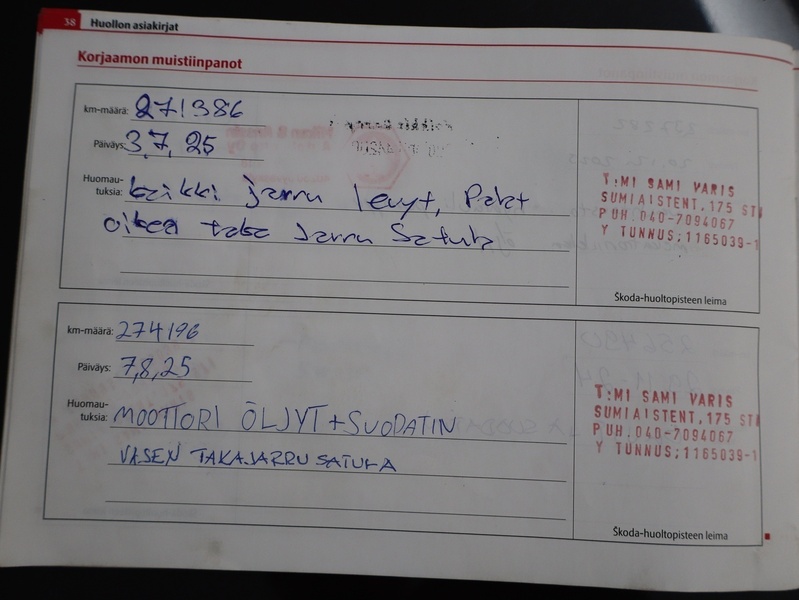 38 Huollon asiakirjat
Korjaamon muistiinpanot
km-määrä: 271386
Päiväys: 3,7, 25
Huomau-
tuksia: kaikki jarru levyt, Palat
oikea taka Jarru Satula
T:MI SAMI VARIS
SUMIAISTENT.175 ST
PUH.040-7094067
Y TUNNUS;1165039-1
Škoda-huoltopisteen leima
km-määrä: 274196
Päiväys: 7,8,25
Huomau-
tuksia: MOOTTORI ÖLJYT+SUODATIN
VASEN TAKAJARRU SATULA
T:MI SAMI VARIS
SUMIAISTENT.175 ST
PUH.040-7094067
Y TUNNUS;1165039-1
Škoda-huoltopisteen leima